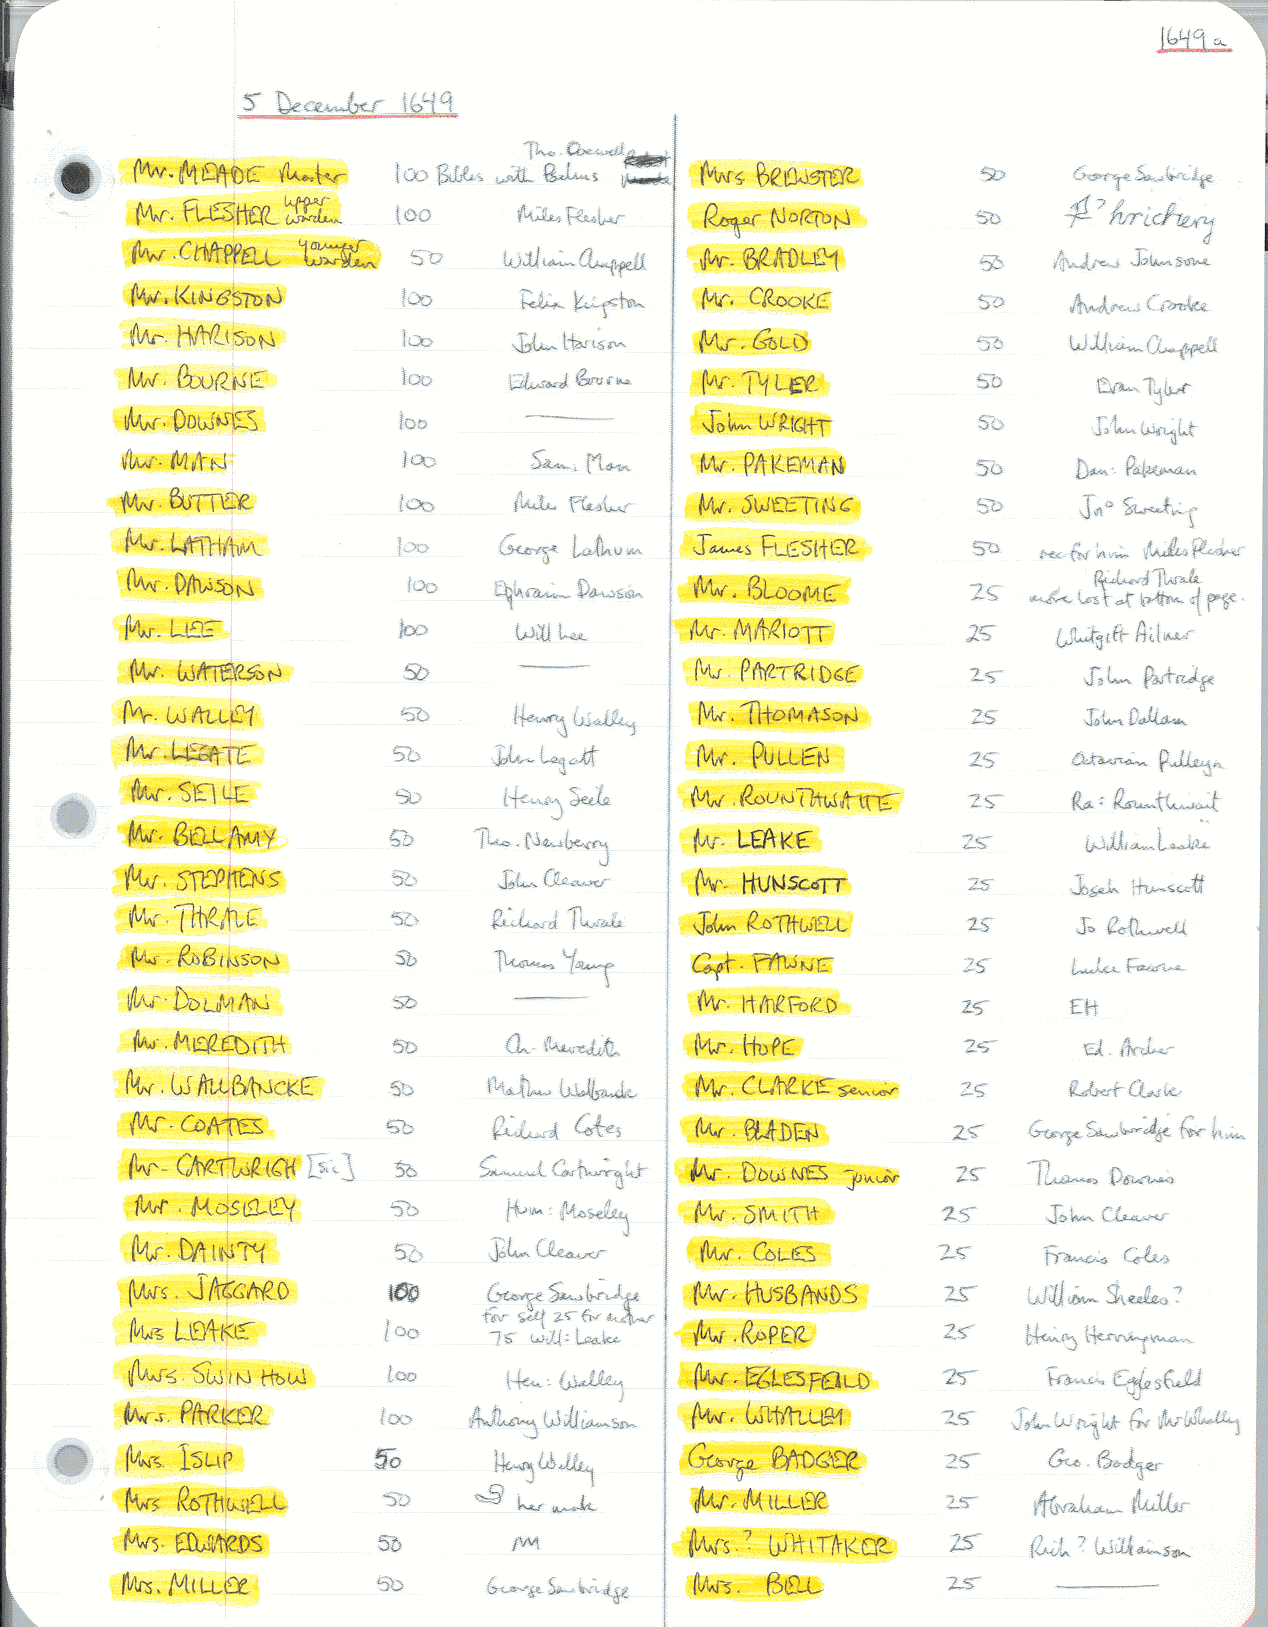 1649a
5 December 1649
Mr. MEADE Master 100 Bibles with Psalms Tho. 
Mr. FLESHER upper warden 100 Miles Flesher
Mr. CHAPPELL younger warden 50 William Chappell
Mr. KINGSTON 100 Felix Kingston
Mr. HARISON 100 John Harison
Mr. BOURNE 100 Edward Bourne
Mr. DOWNES 100 —
Mr. MAN 100 Sam: Man
Mr. BUTTER 100 Miles Flesher
Mr. LATHAM 100 George Lathum
Mr. DAWSON 100 Ephraim Dawson
Mr. LEE 100 Will Lee
Mr. WATERSON 50 —
Mr. WALLEY 50 Henry Walley
Mr. LEGATE 50 John Legatt
Mr. SEILE 50 Henry Seile
Mr. BELLAMY 50 Tho. Newberry
Mr. STEPHENS 50 John Cleaver
Mr. THRALE 50 Richard Thrale
Mr. ROBINSON 50 Thomas Young
Mr. DOLMAN 50 —
Mr. MEREDITH 50 Ch. Meredith
Mr. WALLBANCKE 50 Mathew Walbancke
Mr. COATES 50 Richard Cotes
Mr. CARTWRIGH [sic] 50 Samuel Cartwright
Mr. MOSELEY 50 Hum: Moseley
Mr. DAINTY 50 John Cleaver
Mrs. JAGGARD 100 George Sawbridge
Mrs LEAKE 100 for self 25 for mother 75 Will: Leake
Mrs. SWINHOW 100 Hen: Walley
Mrs. PARKER 100 Anthony Williamson
Mrs. ISLIP 50 Henry Walley
Mrs ROTHWELL 50 her mark
Mrs. EDWARDS 50 
Mrs. MILLER 50 George Sawbridge
Mrs BREWSTER 50 George Sawbridge
Roger NORTON 50
Mr. BRADLEY 50 Andrew Johnsone
Mr. CROOKE 50 Andrew Crooke
Mr. GOLD 50 William Chappell
Mr. TYLER 50 Evan Tyler
John WRIGHT 50 John Wright
Mr. PAKEMAN 50 Dan: Pakeman
Mr. SWEETING 50 Jno Sweeting
James FLESHER 50 rec for him Miles Flesher
Mr. BLOOME 25 Richard Thrale lost at bottom of page.
Mr. MARIOTT 25 Whitgift Ailmer
Mr. PARTRIDGE 25 John Partridge
Mr. THOMASON 25 John Dallam
Mr. PULLEN 25 Octavian Pulleyn
Mr. ROUNTHWAITE 25 Ra: Rounthwait
Mr. LEAKE 25 William Leake
Mr. HUNSCOTT 25 Joseh Hunscott
John ROTHWELL 25 Jo Rothwell
Capt. FAWNE 25 Luke Fawne
Mr. HARFORD 25 EH
Mr. HOPE 25 Ed. Archer
Mr. CLARKE senior 25 Robert Clarke
Mr. BLADEN 25 George Sawbridge for him
Mr. DOWNES junior 25 Thomas Downes
Mr. SMITH 25 John Cleaver
Mr. COLES 25 Francis Coles
Mr. HUSBANDS 25 William Sheeles?
Mr. ROPER 25 Henry Herringman
Mr. EGLESFEILD 25 Francis Egglesfield
Mr. WHALLEY 25 John Wright for Mr Whalley
George BADGER 25 Geo. Badger
Mr. MILLER 25 Abraham Miller
Mrs.? WHITAKER 25 Rich? Williamson
Mrs. BELL 25 —